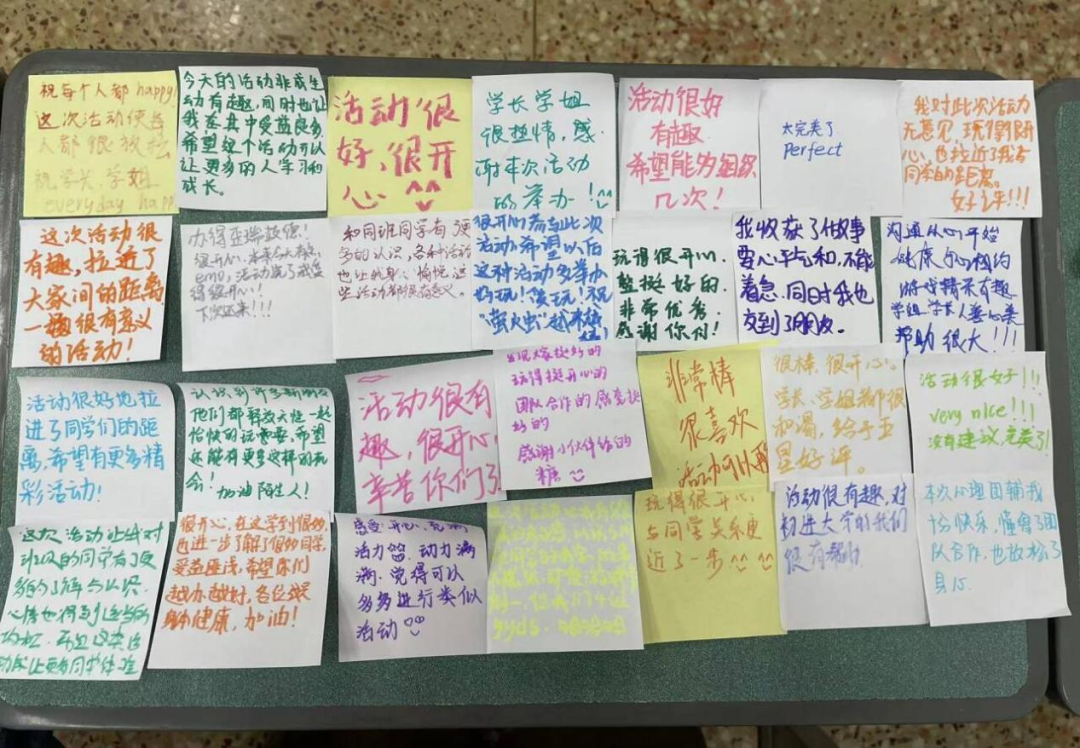 祝每个人都 happy!
这次活动使每
人都很放松
祝学长、学姐
everyday happ
今天的活动非常生
动有趣,同时也让
我在其中受益良多,
希望这个活动可以
让更多的人学习和
成长。
活动很
好,很开
心 ^^
学长学姐
很热情,感
谢本次活动
的举办!
活动很好
有趣
希望能多组织
几次!
太完美了
Perfect
我对此次活动
无意见,玩得很开
心,也拉近了我与
同学的距离。
好评!!!
这次活动很
有趣,拉近了
大家间的距离
一趟很有意义
的活动!
很开心!
emo,活动完了我觉
得很开心!
下次还来!!!
和同班同学有了更
多的认识,各种活动
也让我身心愉悦,这
些活动都很有意义。
很开心参与此次
活动希望以后
这种活动多举办
好玩!爱玩!祝
“萤火虫”越来越
玩得很开心,
蛮挺好的,
非常优秀,
感谢你们!
我收获了做事
要心平气和,不能
着急,同时我也
交到了朋友。
沟通从心开始
游戏精采有趣
学姐、学长人美心美
帮助很大!!!
活动很好地拉
进了同学们的距
离,希望有更多精
彩活动!
认识到许多新朋友
他们都释放天性一起
愉快的玩耍,希望
还能有更多这样的机
会! 加油陌生人!
活动很有
趣,很开心,
辛苦你们了
发现大家挺好的
玩得挺开心的
团队合作的感觉挺
好的
感谢小伙伴给的
糖
非常棒
很喜欢
很棒,很开心。
学长、学姐都很
和蔼,给予五
星好评。
活动很好!!!
very nice!!!
没有建议,完美了!
这次活动让我对
班级的同学有了更
多的了解与认识,
心情也得到适当的
放松,
动能让更多同学体验
很开心,在这学到很多,
也进一步了解了很多同学,
受益匪浅,希望你们
越办越好,各位
身体健康,加油!
感受:开心,充满
活力,动力满
满,觉得可以
多多进行类似
活动
yyds.
玩得很开心,
与同学关系更
近了一步 ^^
活动很有趣,对
初进大学的我们
很有帮助
本次心理团辅我
十分快乐,懂得了团
队合作,也放松了
身心